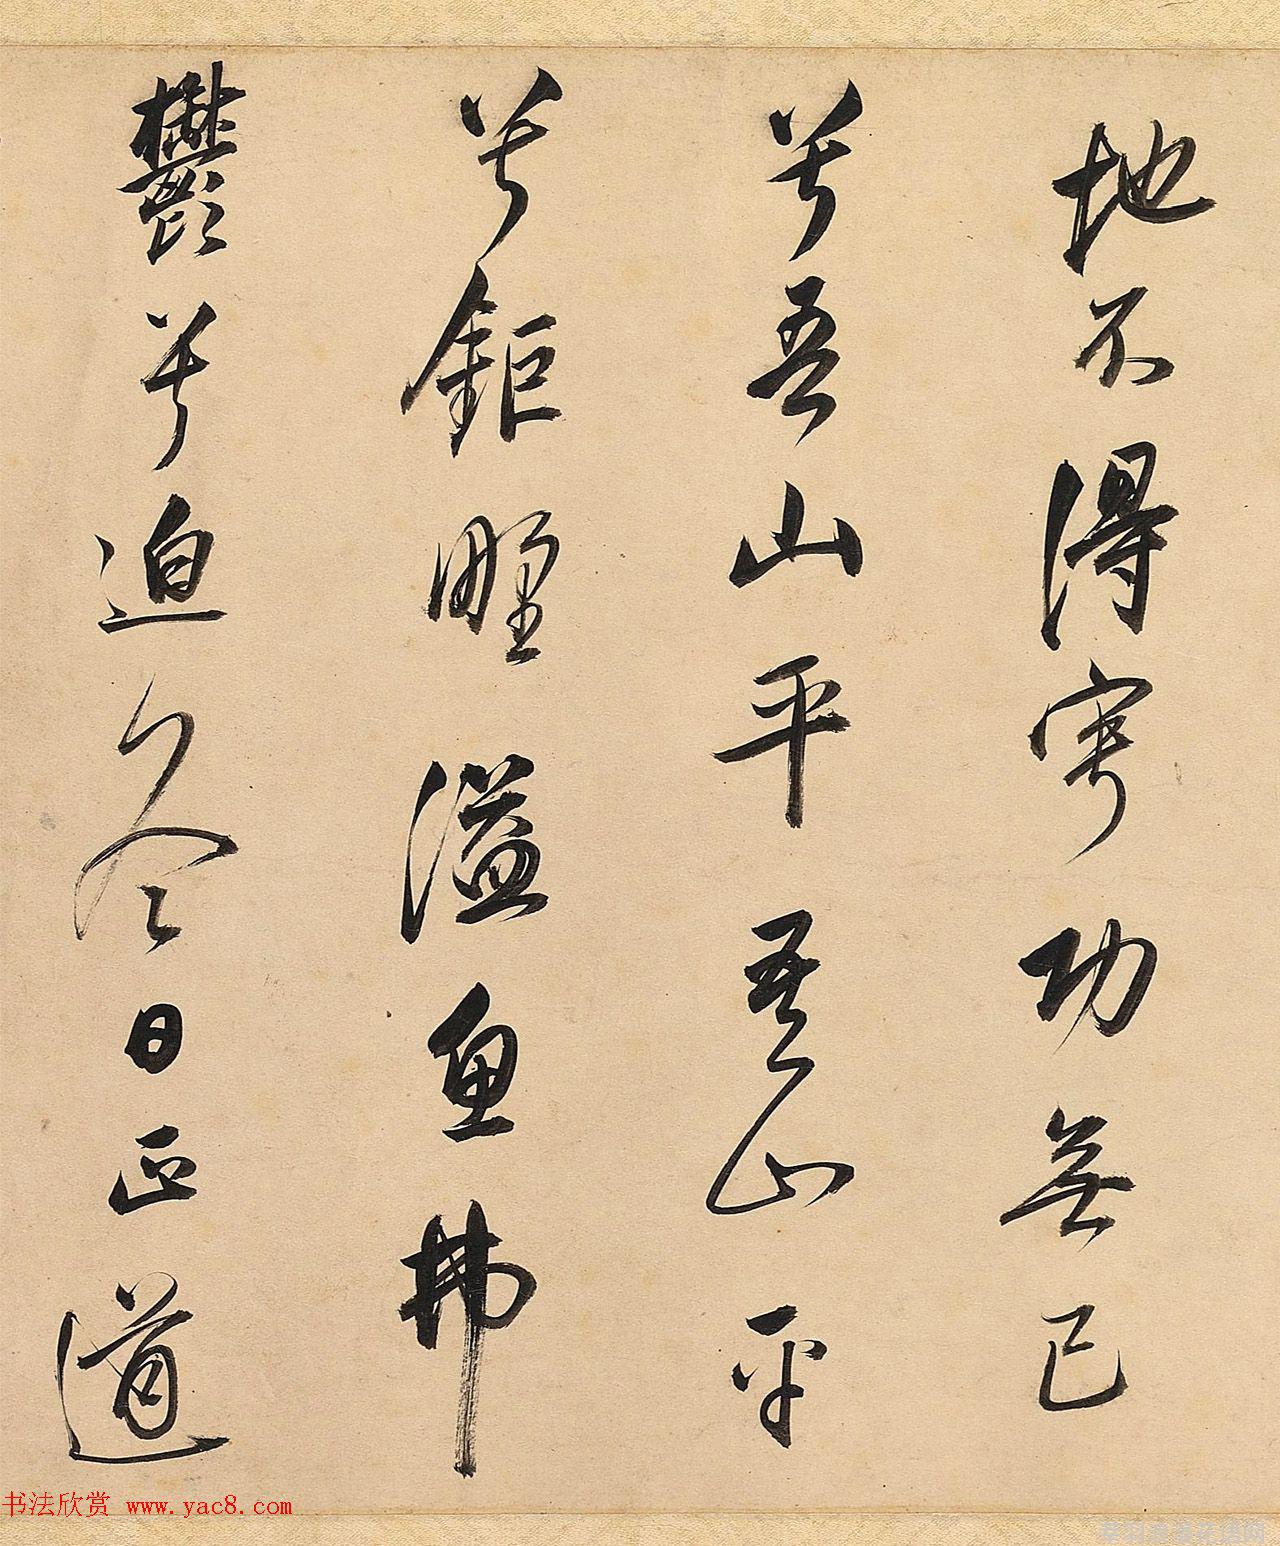 地不得寧功無已
兮吾山平吾山平
兮鉅野溢魚拂
鬱兮迫冬日正道
书法欣赏 www.yac8.com